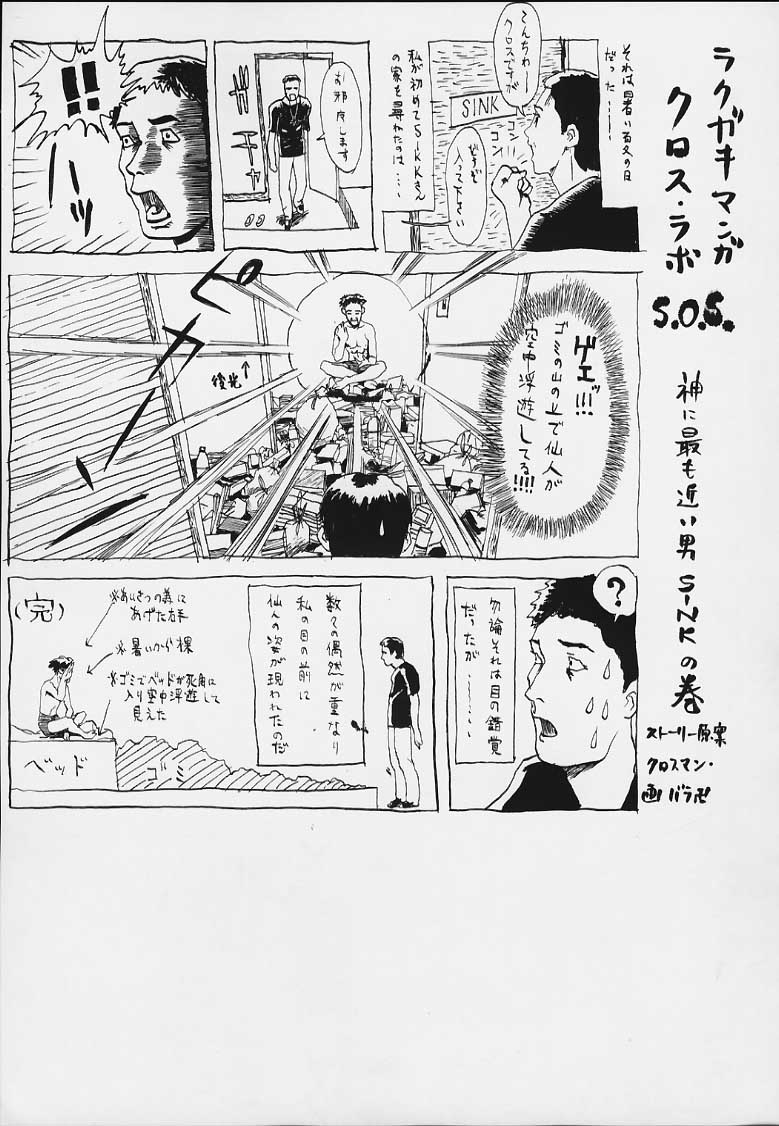 ラクガキマンガ
クロス・ラボ
S.O.S.
神に最も近い男 SiNKの巻
ストーリー原案
クロスマン・
画 バラ卍
それは暑い夏の日
だった………
こんちわー
クロスですが
SINK
コン
コン
どうぞ
入って下さい
私が初めてSiNKさん
の家を尋ねたのは…
お邪魔します
ガチャ
!!
ーッ
ゲエッ!!!
ゴミの山の上で仙人が
空中浮遊してる!!!!
後光→
ピカーッ
?
勿論それは目の錯覚
だったが………
数々の偶然が重なり
私の目の前に
仙人の姿が現われたのだ
(完)
※あいさつの為に
あげた右手
※暑いから裸
※ゴミでベッドが死角に
入り空中浮遊して
見えた
ベッド
ゴミ